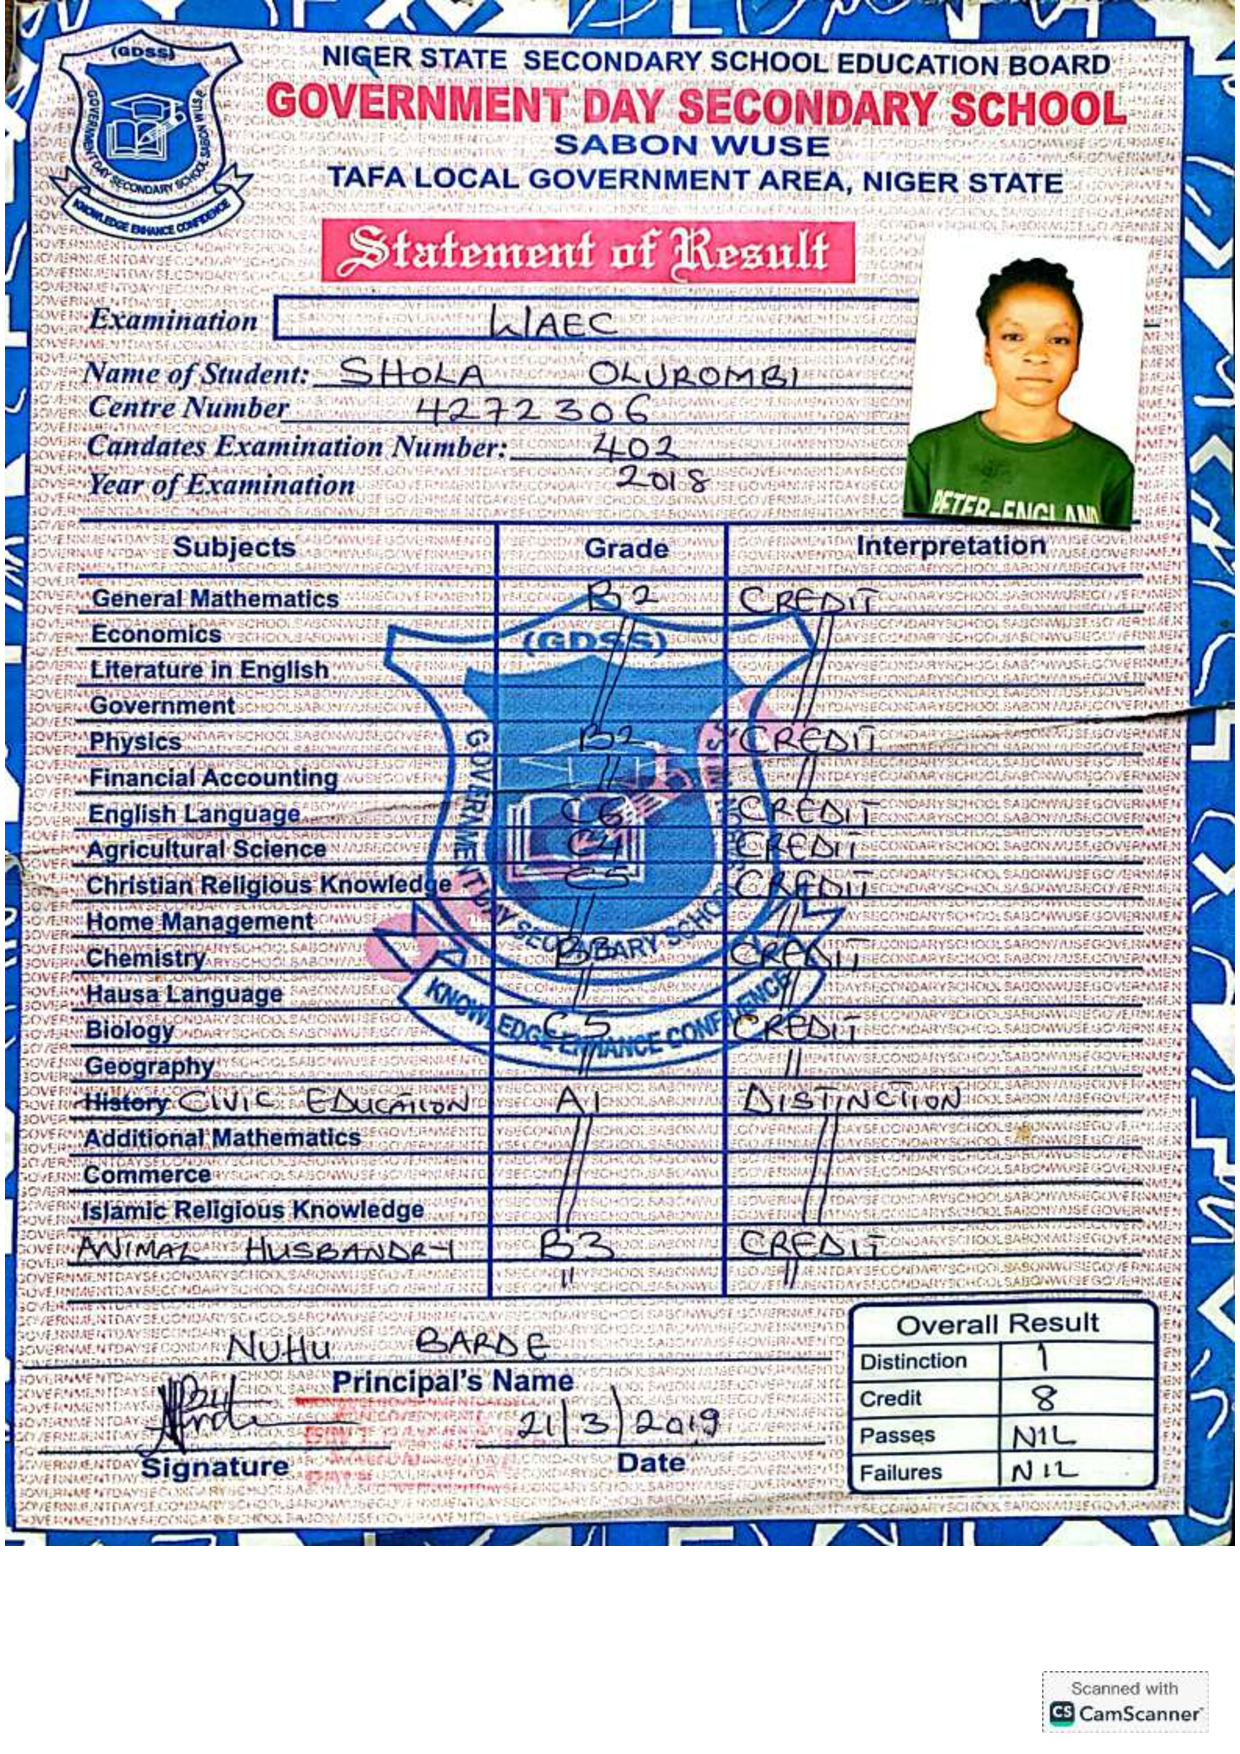 (GDSS)
GOVERNMENT DAY SECONDARY SCHOOL SABON WUSE
KNOWLEDGE ENHANCE CONFIDENCE
NIGER STATE SECONDARY SCHOOL EDUCATION BOARD
GOVERNMENT DAY SECONDARY SCHOOL
SABON WUSE
TAFA LOCAL GOVERNMENT AREA, NIGER STATE
Statement of Result
Examination WAEC
Name of Student: SHOLA OLUROMBI
Centre Number 4272306
Candates Examination Number: 402
Year of Examination 2018
PETER-ENGLAND
Subjects Grade Interpretation
General Mathematics B2 CREDIT
Economics
Literature in English
Government
Physics B2 CREDIT
Financial Accounting
English Language C6 CREDIT
Agricultural Science C4 CREDIT
Christian Religious Knowledge C5 CREDIT
Home Management
Chemistry B3 CREDIT
Hausa Language
Biology C5 CREDIT
Geography
History CIVIC EDUCATION A1 DISTINCTION
Additional Mathematics
Commerce
Islamic Religious Knowledge
ANIMAL HUSBANDRY B3 CREDIT
(GDSS)
KNOWLEDGE ENHANCE CONFIDENCE
NUHU BARDE
Principal's Name
21/3/2019
Signature Date
Overall Result
Distinction 1
Credit 8
Passes NIL
Failures NIL
Scanned with
CS CamScanner